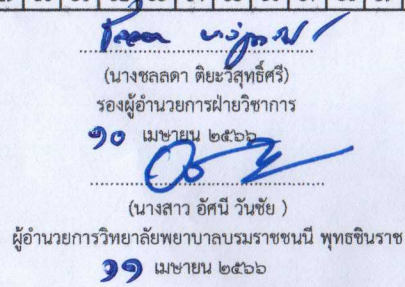 (นางชลลดา ติยะวิสุทธิ์ศรี)
รองผู้อำนวยการฝ่ายวิชาการ
๑๐ เมษายน ๒๕๖๖
(นางสาว อัศนี วันชัย )
ผู้อำนวยการวิทยาลัยพยาบาลบรมราชชนนี พุทธชินราช
๑๑ เมษายน ๒๕๖๖